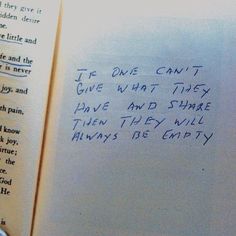 d they give it
idden desire
ne.
e little and
fe and the
e is never
joy, and
th pain,
d know
k joy,
virtue;
the
ce.
God
He
is
IF ONE CAN'T
GIVE WHAT THEY
HAVE AND SHARE
THEN THEY WILL
ALWAYS BE EMPTY